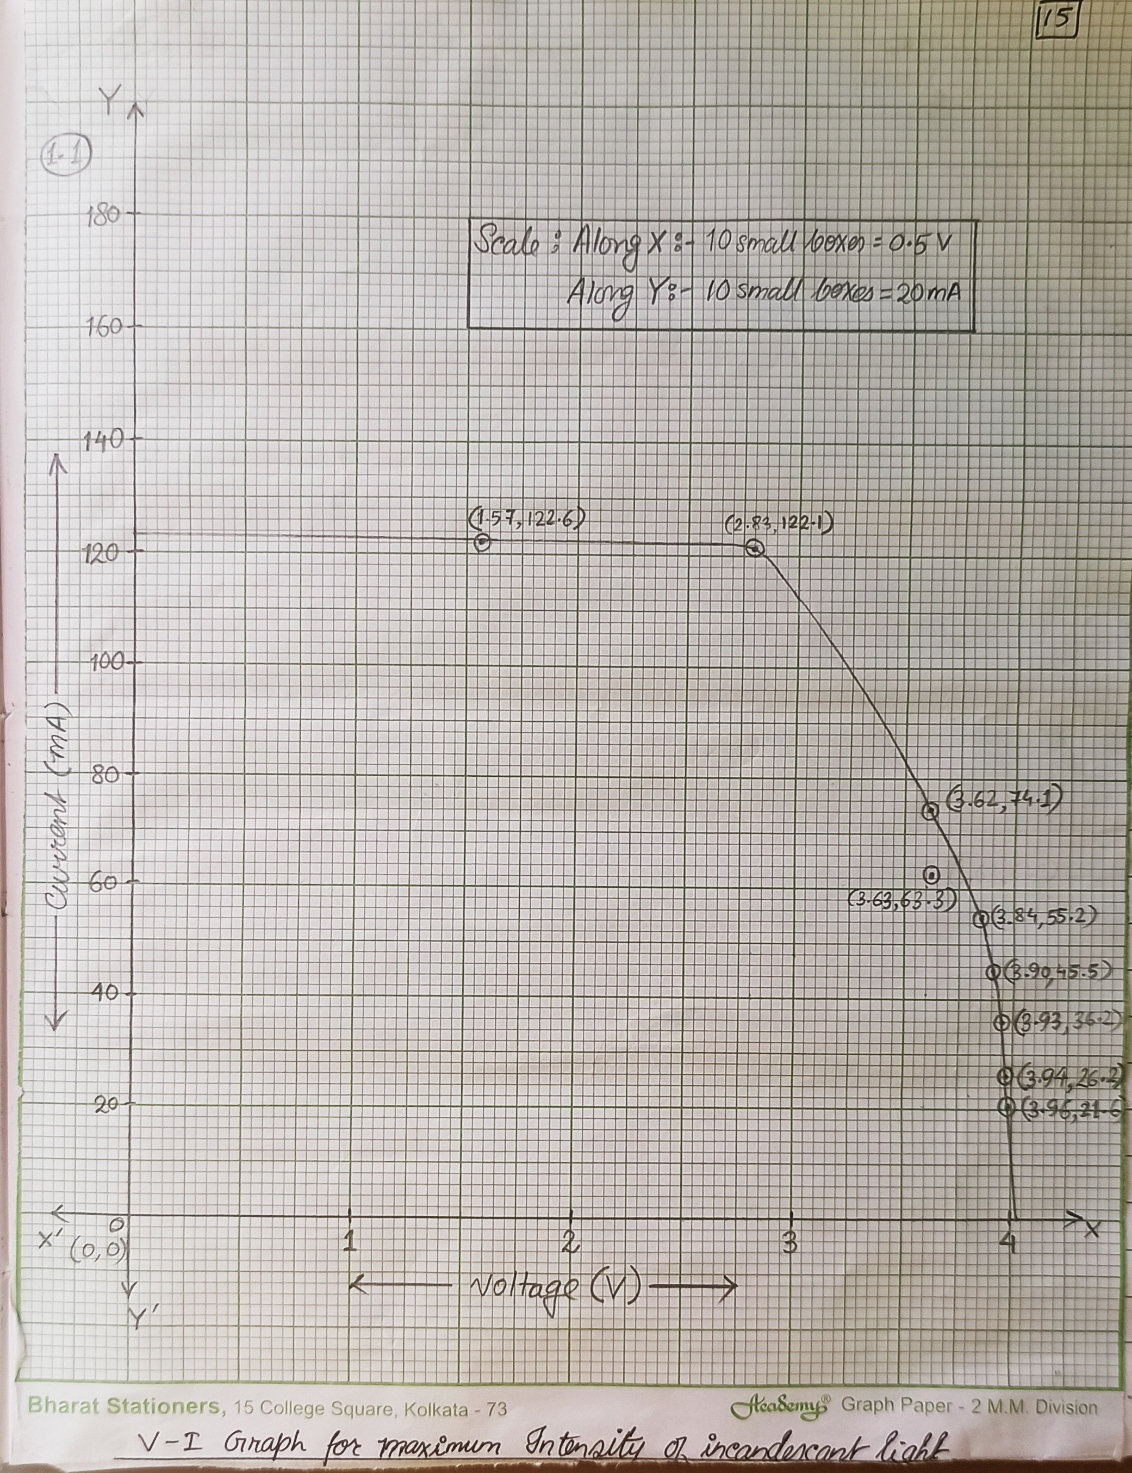 15
Y
1.1
180
Scale : Along X :- 10 small boxes = 0.5 V
Along Y :- 10 small boxes = 20mA
160
140
(1.57, 122.6)
(2.83, 122.1)
120
100
Current (mA)
80
(3.62, 74.1)
60
(3.63, 63.3)
(3.84, 55.2)
(3.90, 45.5)
40
(3.93, 36.2)
(3.94, 26.2)
20
(3.96, 21.6
X'
O
(0,0)
1
2
3
4
X
Voltage (V)
Y'
Bharat Stationers, 15 College Square, Kolkata - 73
Academy® Graph Paper - 2 M.M. Division
V-I Graph for maximum Intensity of incandescant light